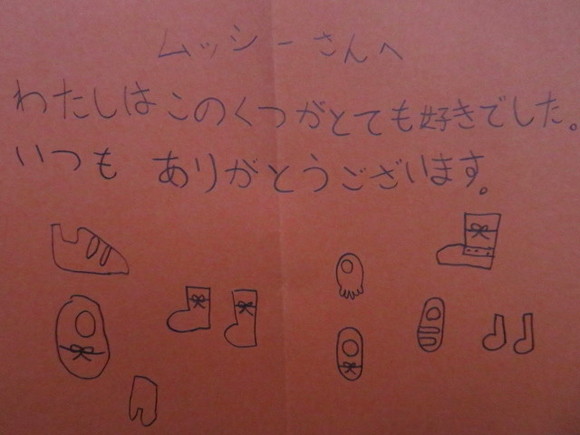 ムッシーさんへ
わたしはこのくつがとても好きでした。
いつも ありがとうございます。